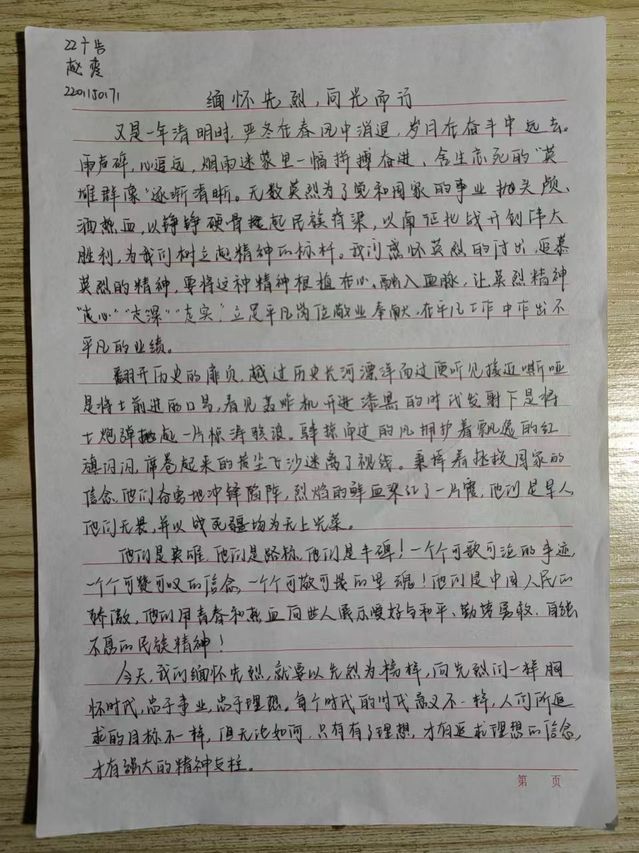 22广告
赵
2201150171
缅怀先烈，向光而行
又是一年清明时，严冬在春风中消退，岁月在奋斗中远去。
雨声碎，心逐远，烟雨迷蒙里一幅拼搏奋进、舍生忘死的“英
雄群像”逐渐清晰。无数英烈为了党和国家的事业抛头颅、
洒热血，以铮铮硬骨挺起民族脊梁，以南征北战开创伟大
胜利，为我们树立起精神的标杆。我们感怀英烈的付出，追慕
英烈的精神，要将这种精神根植在心，融入血脉，让英烈精神
“走心”“走深”“走实”，立足平凡岗位敬业奉献，在平凡工作中作出不
平凡的业绩。
翻开历史的扉页，越过历史长河漂洋而过便听见接近嘶哑
是将士前进的口号，看见轰炸机开进漆黑的时代发射下是将
士炮弹抛起一片惊涛骇浪。肆掠而过的风拥护着飘逸的红
旗闪闪，席卷起来的苦尘飞沙迷离了视线。秉持着拯救国家的
信念，他们奋勇地冲锋陷阵，烈焰的鲜血染红了一片霞，他们是军人
他们无畏，并以战死疆场为无上光荣。
他们是英雄，他们是路标，他们是丰碑！一个个可歌可泣的事迹，
一个个可赞可叹的信念，一个个可敬可畏的军魂！他们是中国人民的
骄傲，他们用青春和热血向世人展示爱好与和平、勤劳勇敢、自强
不息的民族精神！
今天，我们缅怀先烈，就要以先烈为榜样，向先烈们一样胸
怀时代，忠于事业，忠于理想。每个时代的时代意义不一样，人们所追
求的目标不一样，但无论如何，只有有了理想，才有追求理想的信念，
才有强大的精神支柱。
第 页